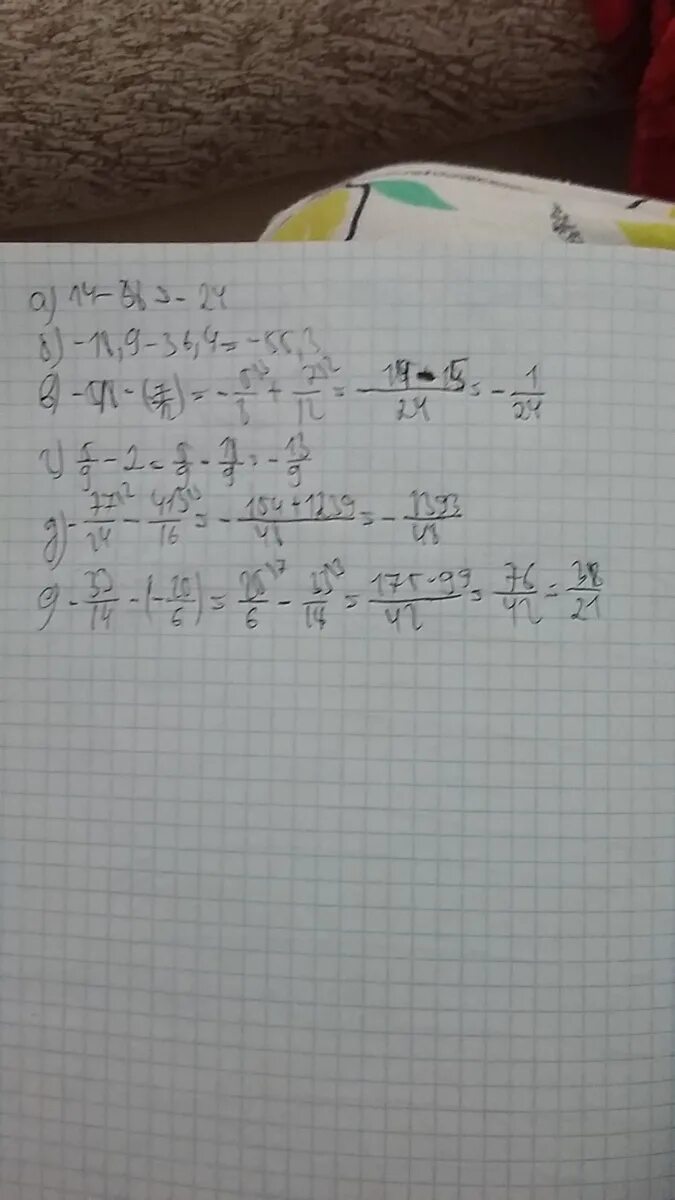 а) 14-38=-24
б) -18,9-36,4=-55,3
в) -5/8-(7/12)=-5^3/8+7^2/12=14-15/24=-1/24
г) 5/9-2=5/9-18/9=-13/9
д) -77^2/24-413^3/16=-154+1239/48=-1393/48
-33/14-(-25/6)=25^7/6-33^3/14=175-99/42=76/42=38/21